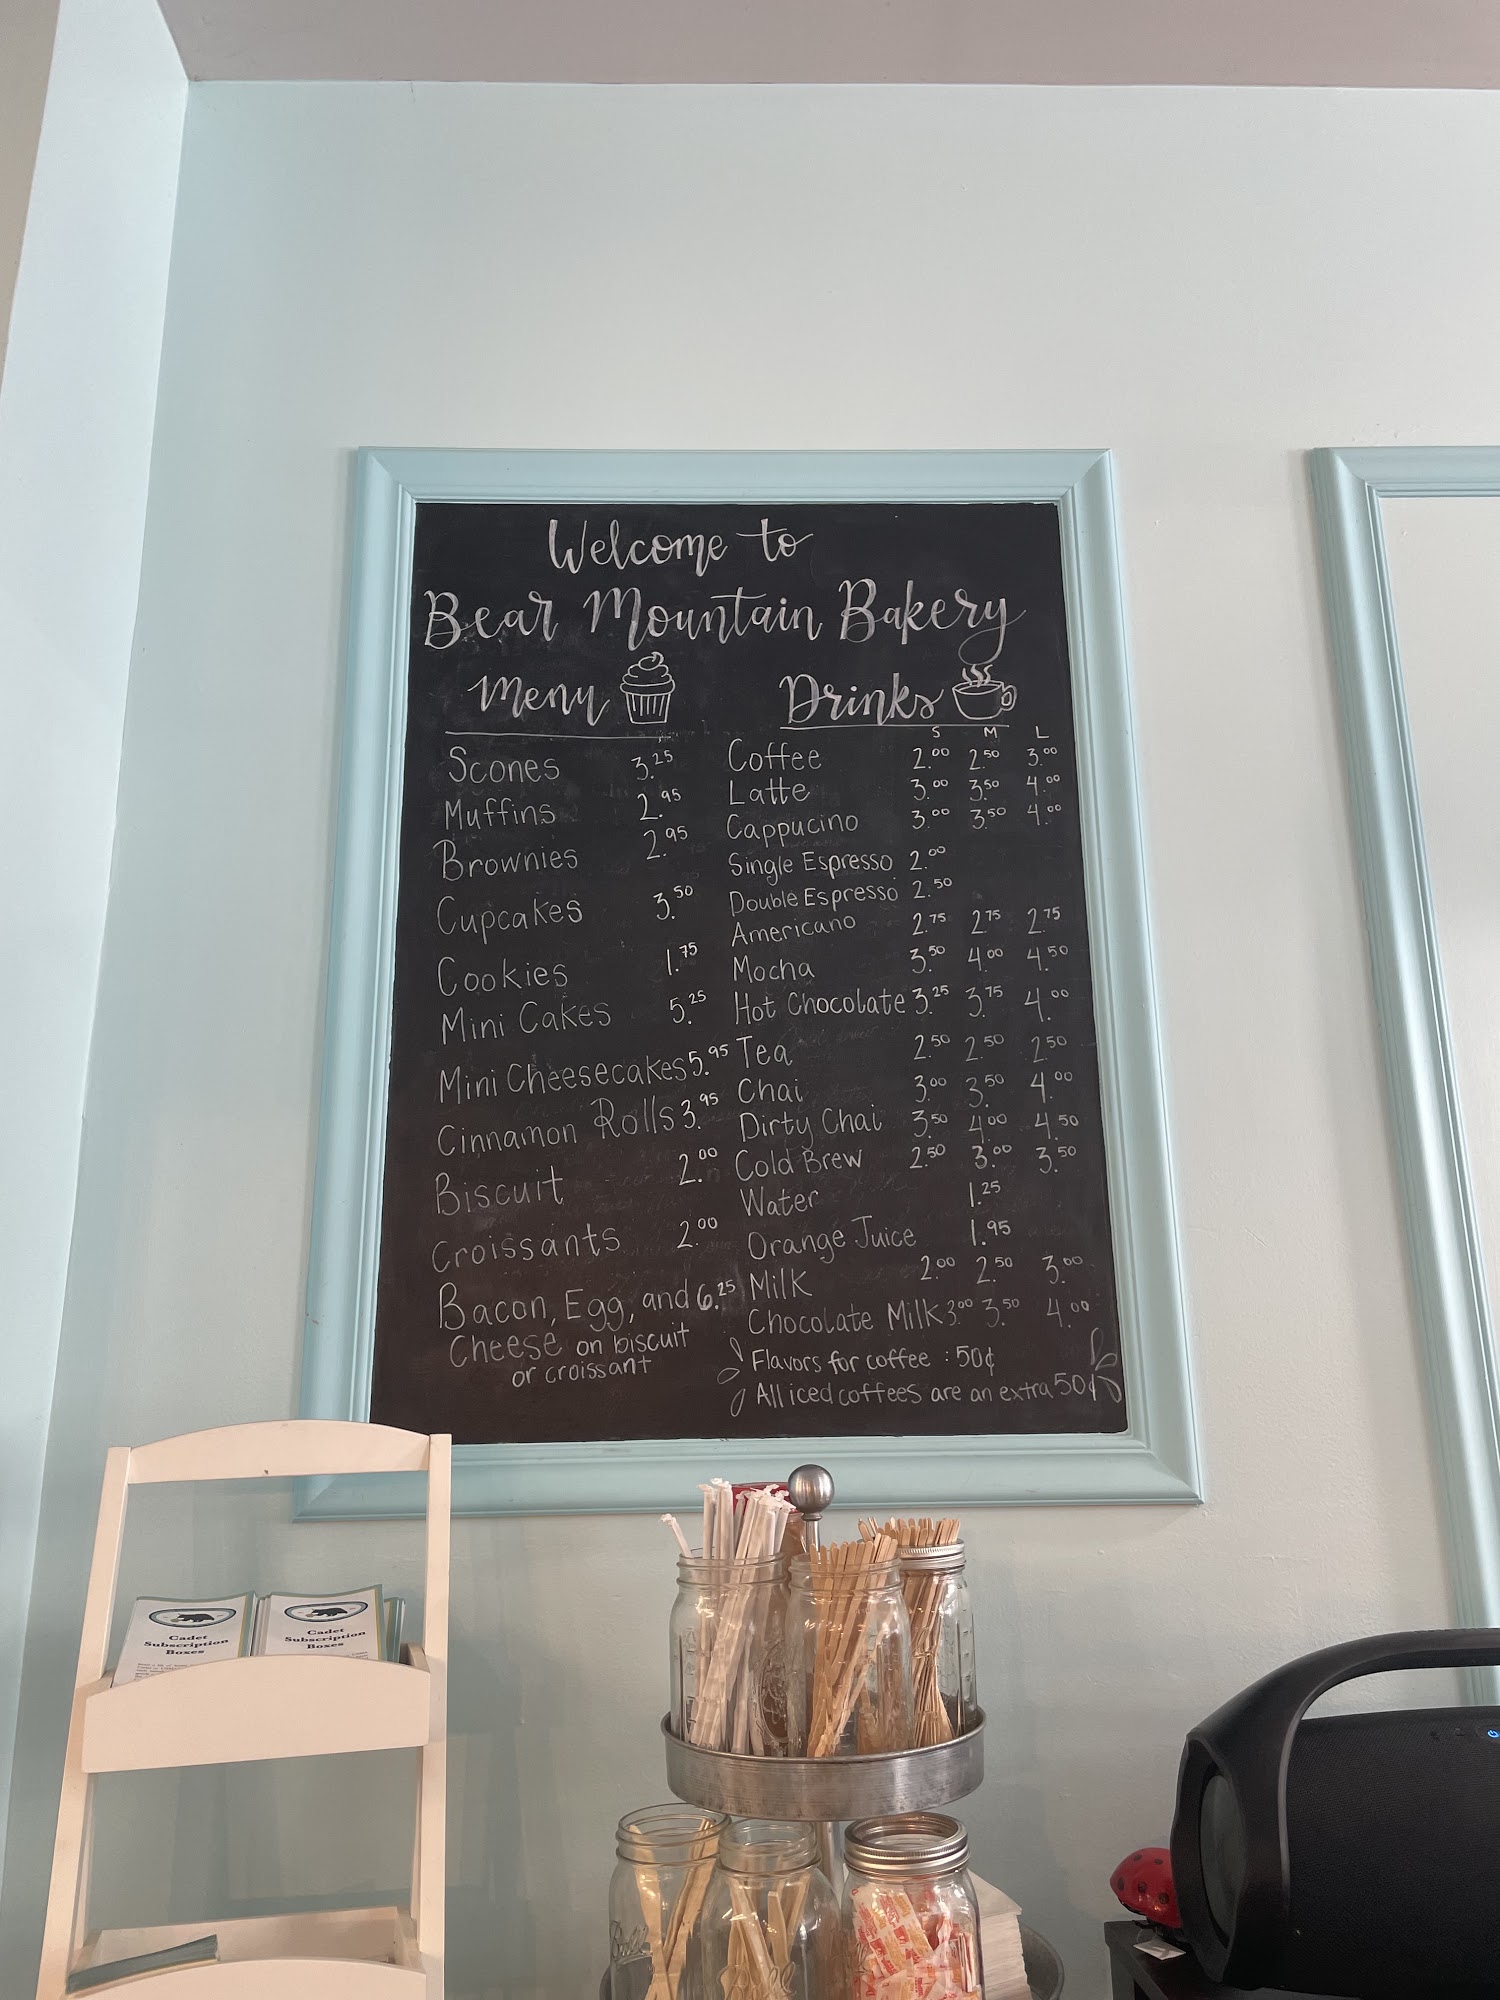 Welcome to
Bear Mountain Bakery
Menu
Scones 3.25
Muffins 2.95
Brownies 2.95
Cupcakes 3.50
Cookies 1.75
Mini Cakes 5.25
Mini Cheesecakes 5.95
Cinnamon Rolls 3.95
Biscuit 2.00
Croissants 2.00
Bacon, Egg, and 6.25
Cheese on biscuit
or croissant
Drinks
S M L
Coffee 2.00 2.50 3.00
Latte 3.00 3.50 4.00
Cappucino 3.00 3.50 4.00
Single Espresso 2.00
Double Espresso 2.50
Americano 2.75 2.75 2.75
Mocha 3.50 4.00 4.50
Hot Chocolate 3.25 3.75 4.00
Tea 2.50 2.50 2.50
Chai 3.00 3.50 4.00
Dirty Chai 3.50 4.00 4.50
Cold Brew 2.50 3.00 3.50
Water 1.25
Orange Juice 1.95
Milk 2.00 2.50 3.00
Chocolate Milk 3.00 3.50 4.00
Flavors for coffee : 50¢
All iced coffees are an extra 50¢
Cadet
Subscription
Boxes
Cadet
Subscription
Boxes